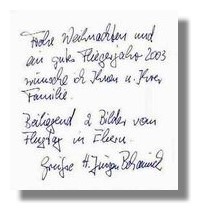 Frohe Weihnachten und
ein gutes Fliegerjahr 2003
wünsche ich Ihnen u. Ihrer
Familie.
Beiliegend 2 Bilder vom
Flugtag in
Grüße H. Jürgen